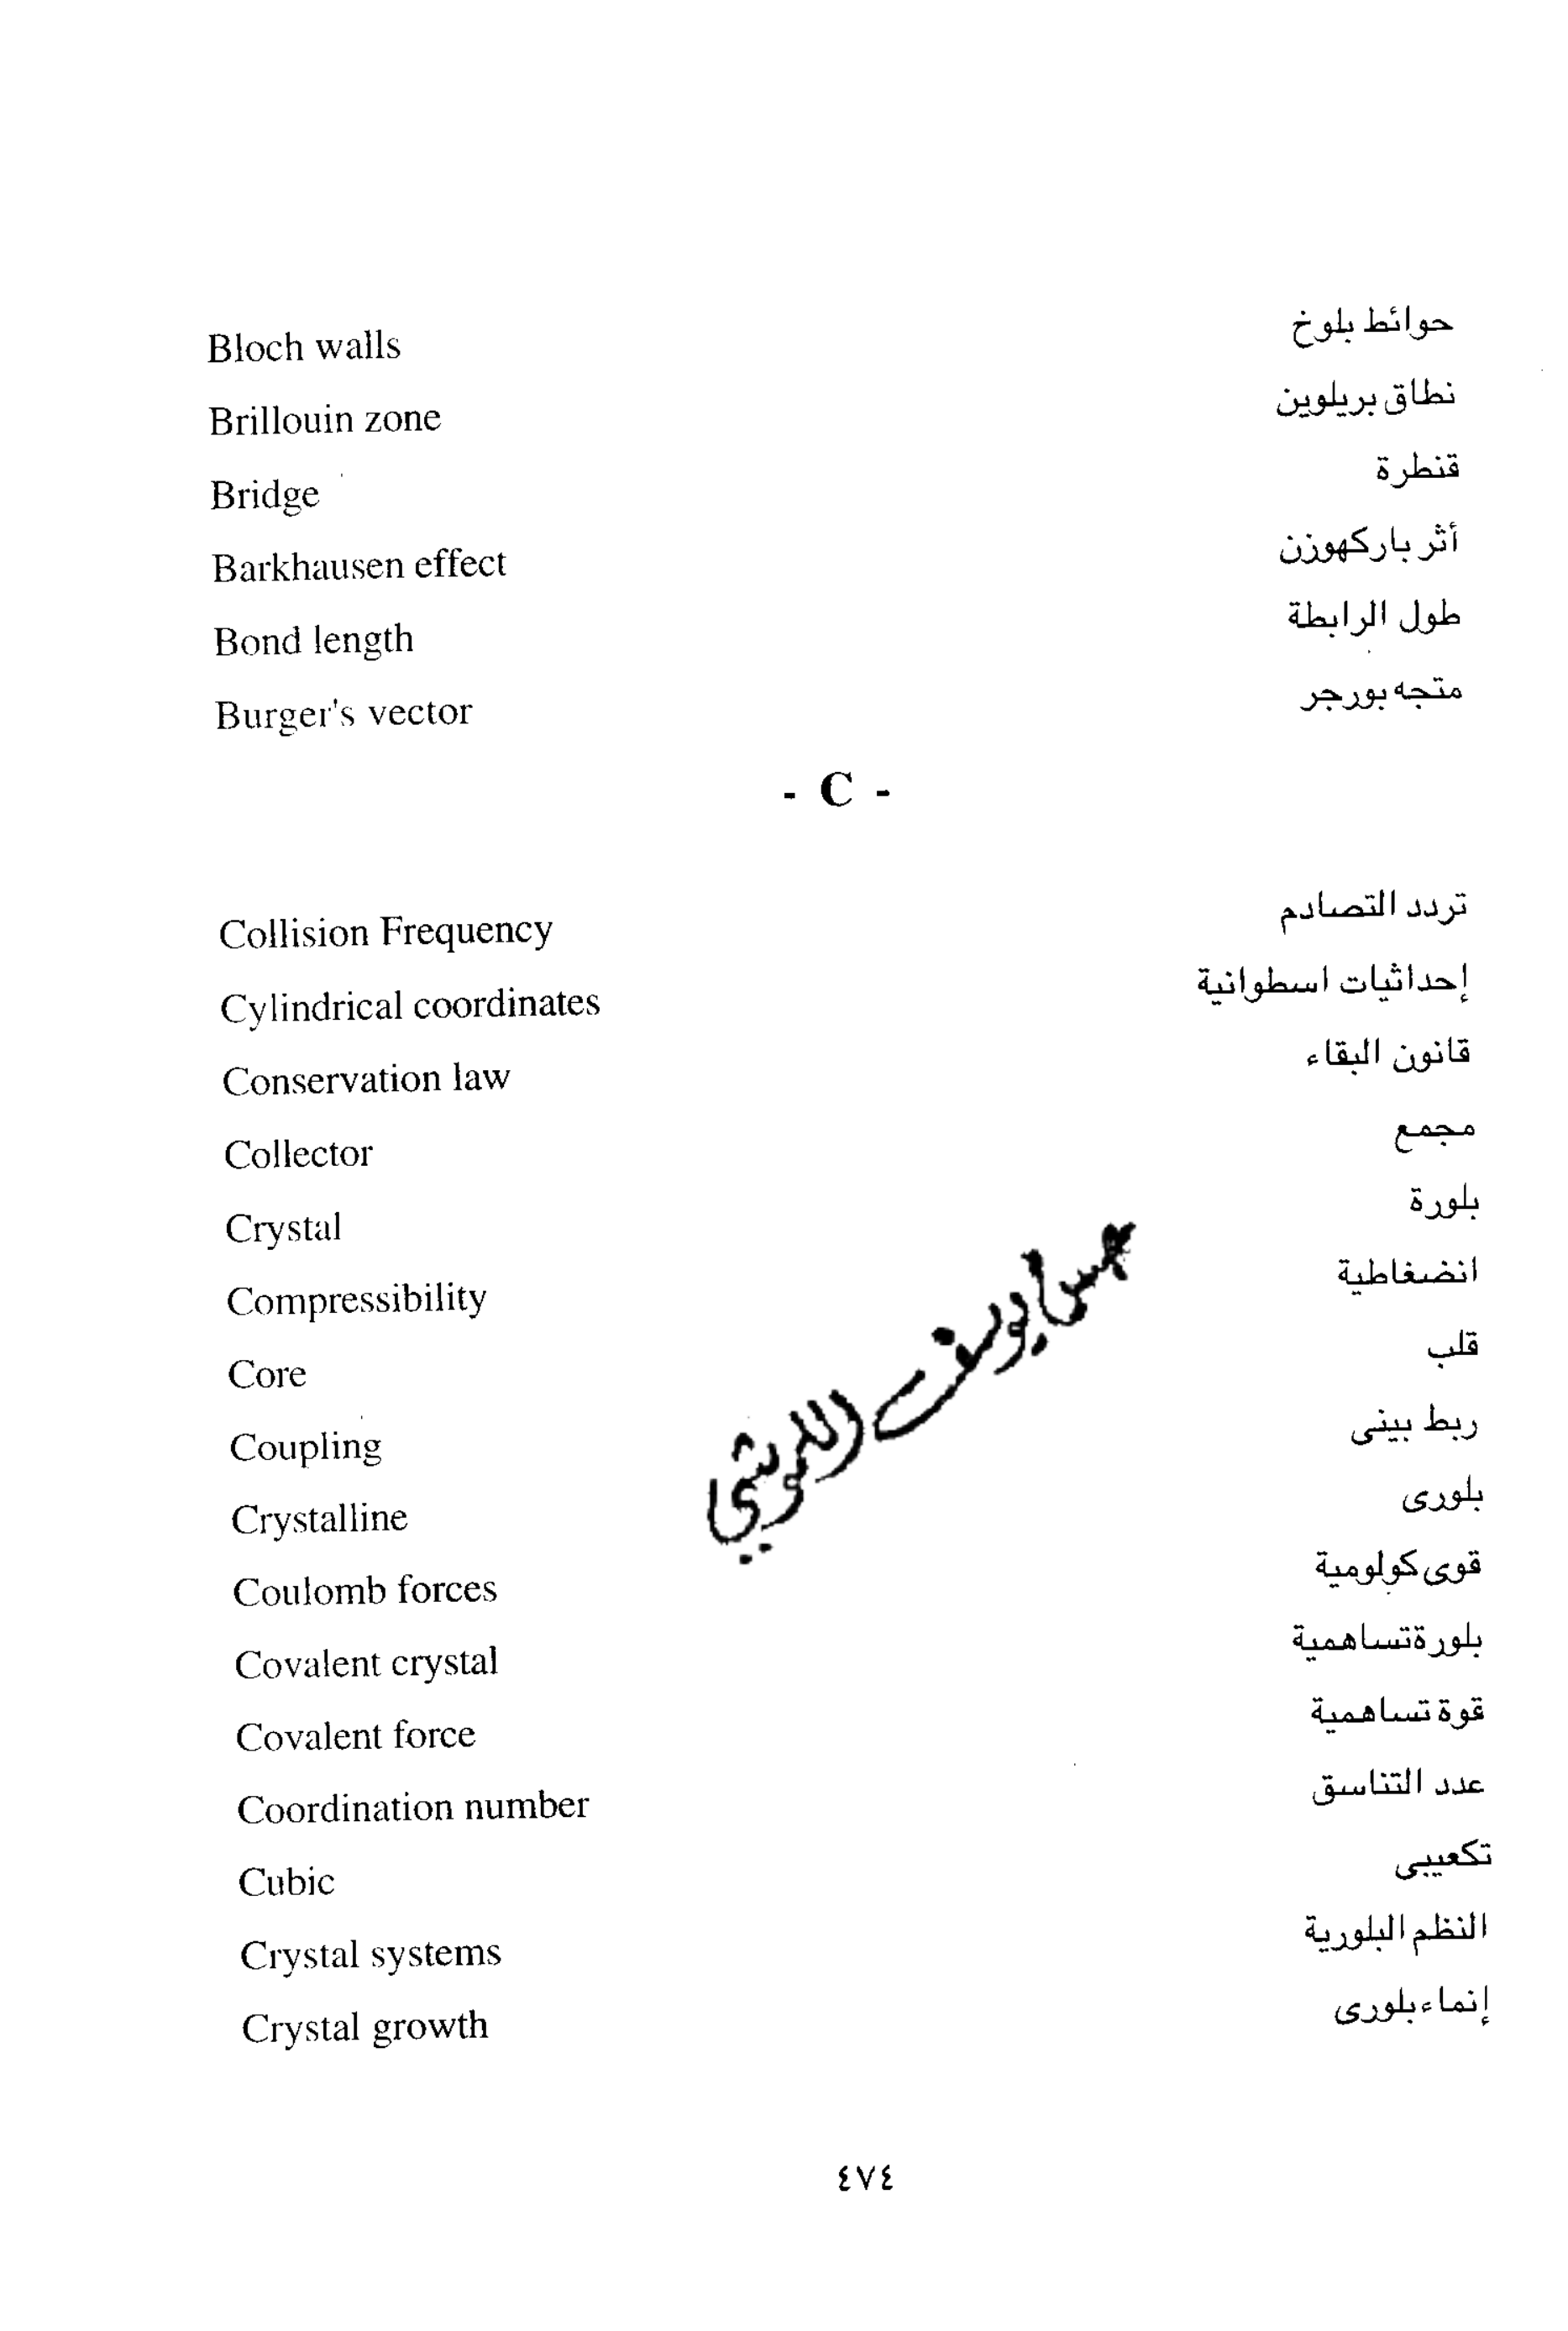 Bloch walls حوائط بلوخ
Brillouin zone نطاق بريلوين
Bridge قنطرة
Barkhausen effect أثر باركهوزن
Bond length طول الرابطة
Burger's vector متجه بورجر
- C -
Collision Frequency تردد التصادم
Cylindrical coordinates إحداثيات اسطوانية
Conservation law قانون البقاء
Collector مجمع
Crystal بلورة
Compressibility انضغاطية
Core قلب
Coupling ربط بينى
Crystalline بلورى
Coulomb forces قوى كولومية
Covalent crystal بلورة تساهمية
Covalent force قوة تساهمية
Coordination number عدد التناسق
Cubic تكعيبى
Crystal systems النظم البلورية
Crystal growth إنماء بلورى
٤٧٤